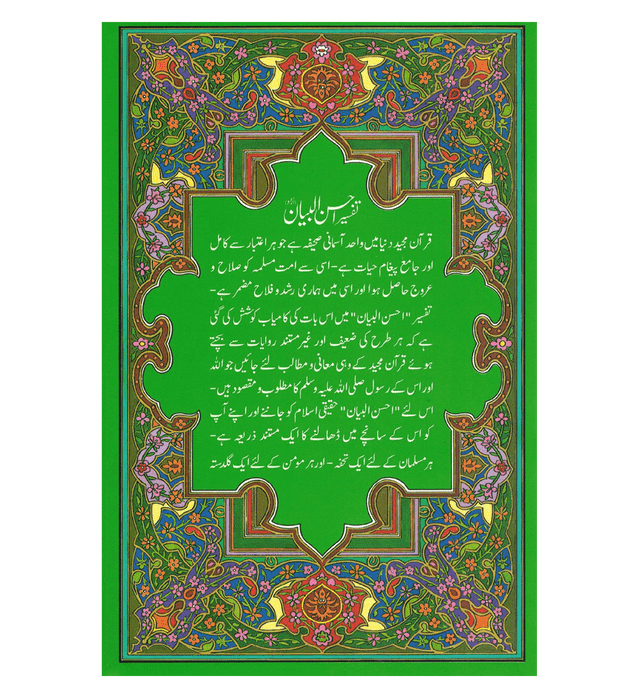 تفسیر احسن البیان
قرآن مجید دنیا میں واحد آسمانی صحیفہ ہے جو ہر اعتبار سے کامل
اور جامع پیغام حیات ہے- اسی سے امت مسلمہ کو صلاح و
عروج حاصل ہوا اور اسی میں ہماری رشد و فلاح مضمر ہے-
تفسیر "احسن البیان" میں اس بات کی کامیاب کوشش کی گئی
ہے کہ ہر طرح کی ضعیف اور غیر مستند روایات سے بچتے
ہوئے قرآن مجید کے وہی معانی و مطالب لئے جائیں جو اللہ
اور اس کے رسول صلی اللہ علیہ وسلم کا مطلوب و مقصود ہیں-
اس لئے "احسن البیان" حقیقی اسلام کو جاننے اور اپنے آپ
کو اس کے سانچے میں ڈھالنے کا ایک مستند ذریعہ ہے-
ہر مسلمان کے لئے ایک تحفہ - اور ہر مومن کے لئے ایک گلدستہ